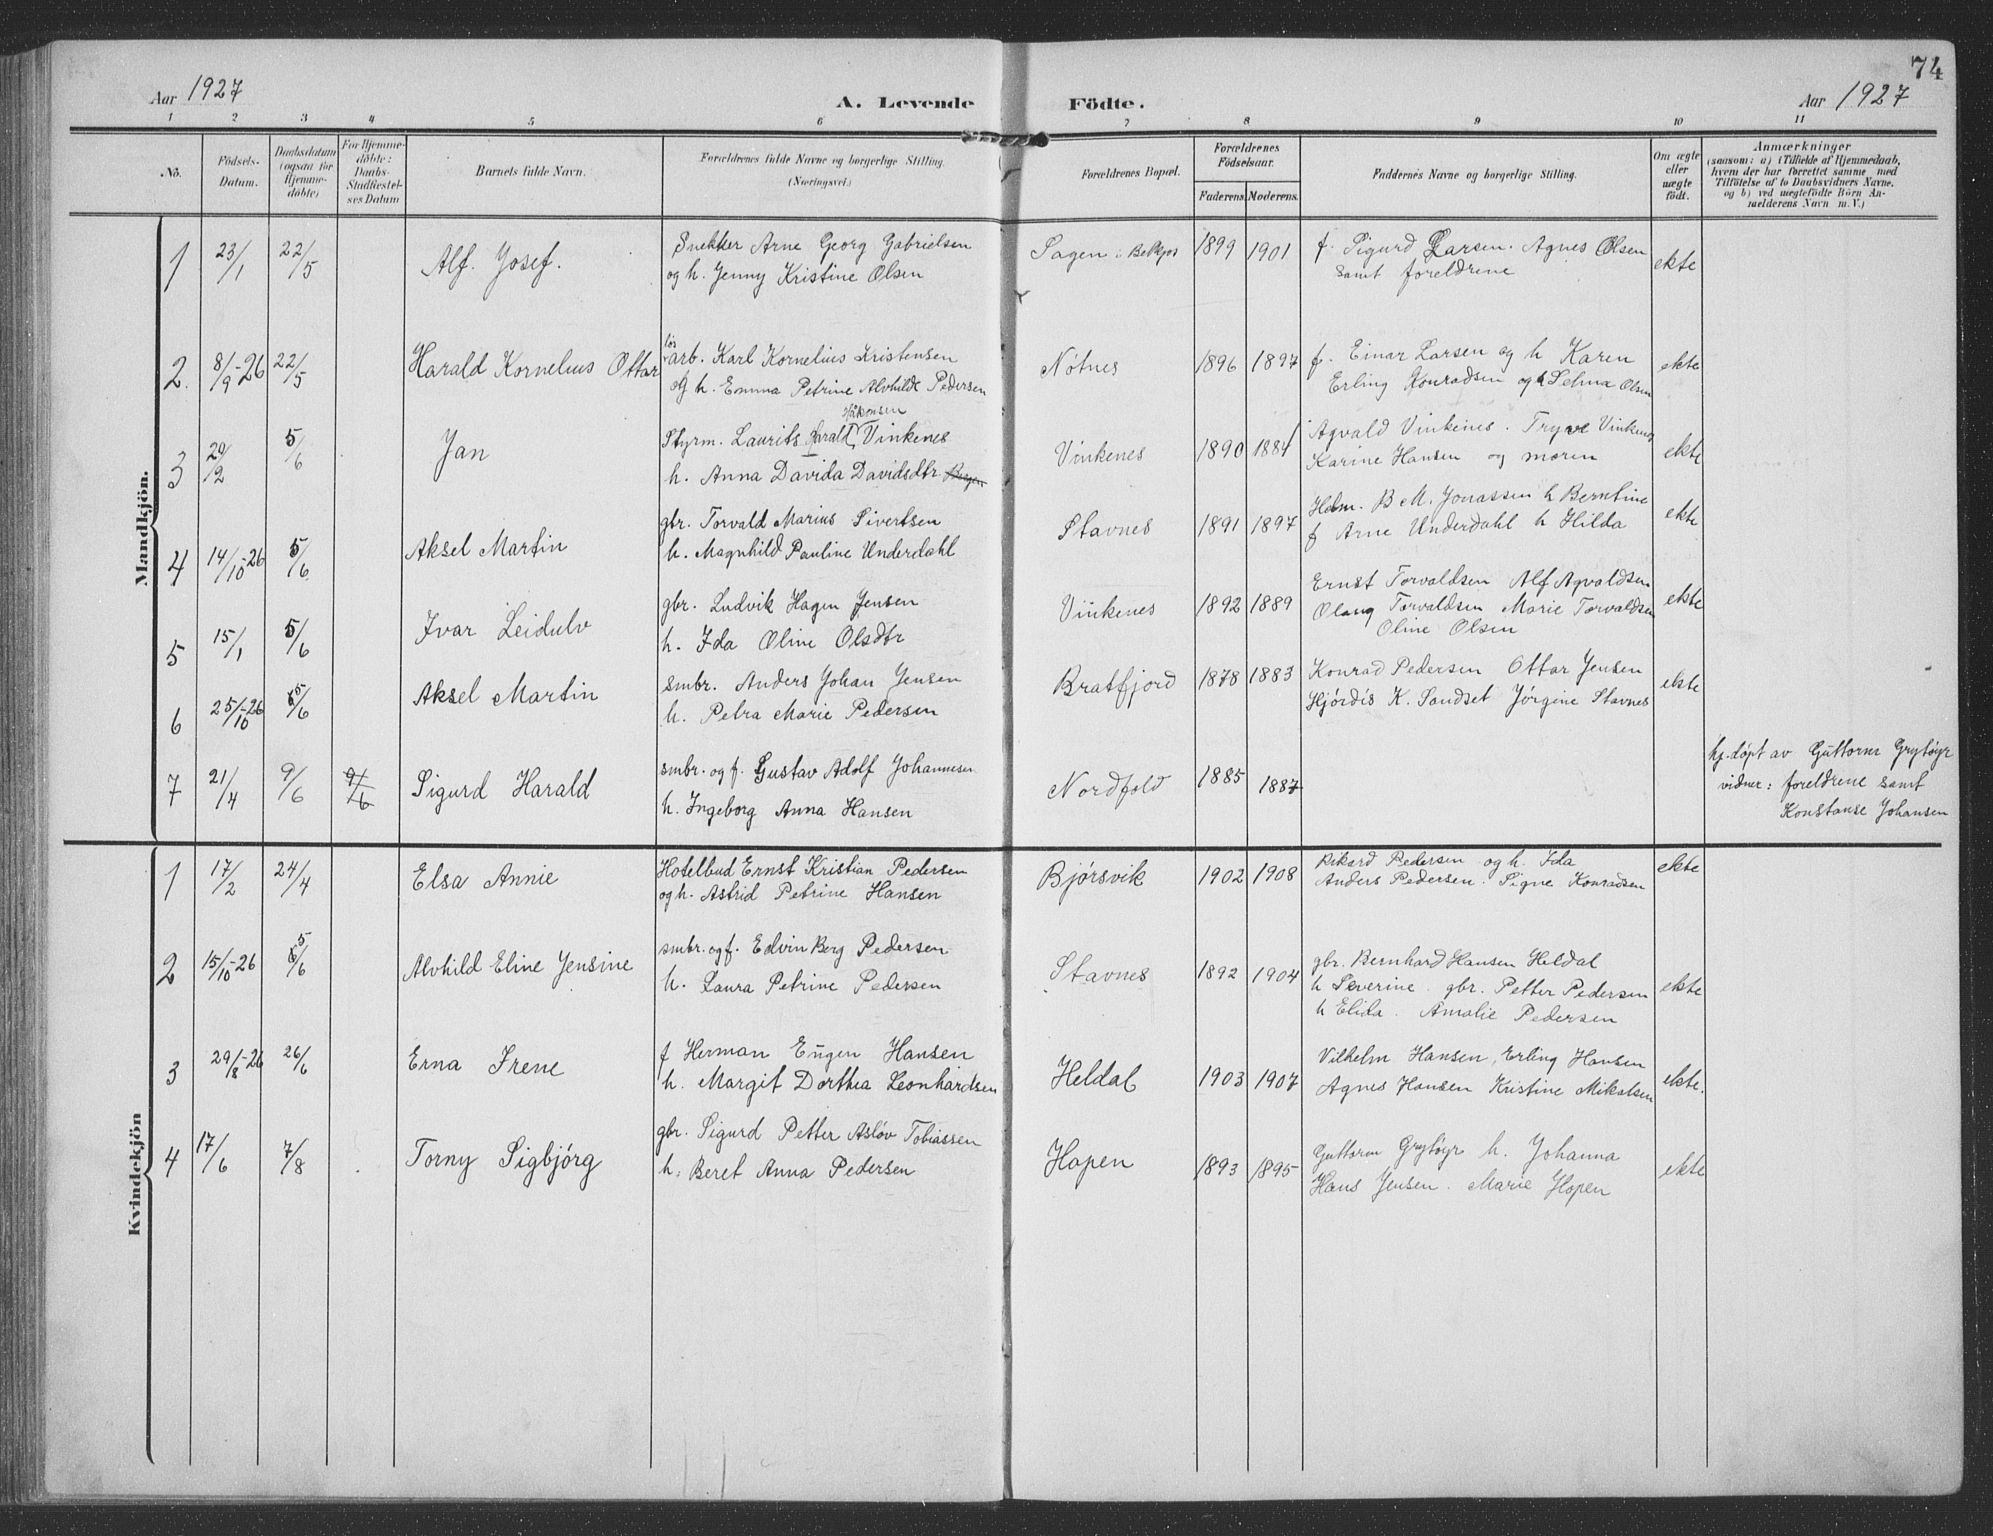 74
Aar 1927
A. Levende Födte.
Aar 1927
1 2 3 4 5 6 7 8 9 10 11
No.
Födsels-Datum.
Daabsdatum (ogsaa for Hjemmedöbte)
For Hjemmedöbte: Daabs-Stadfæstelses Datum
Barnets fulde Navn.
Forældrenes fulde Navne og borgerlige Stilling. (Næringsvei.)
Forældrenes Bopæl.
Forældrenes Födselsaar.
Faderens. Moderens.
Faddernes Navne og borgerlige Stilling.
Om ægte eller uægte født.
Anmærkninger
(saasom: a) i Tilfælde af Hjemmedaab, hvem der har forrettet samme med Tilföielse af to Daabsvidners Navne, og b) ved uægtefödte Börn Anmelderens Navn m. V.)
Mandkjön.
1 23/1 22/5 Alf Josef. Snekker Arne Georg Gabrielsen Sagen i Beltjos 1899 1901 f. Sigurd Larsen. Agnes Olsen ekte
og h. Jenny Kristine Olsen samt foreldrene
2. 8/9-26 22/5 Harald Kornelius Ottar løs arb. Karl Kornelius Kristensen Nötnes 1896 1897 f. Einar Larsen og h Karen ekte
og h. Emma Petrine Alvhilde Pedersen Erling Konradsen og h Selma Olsen
Håkonsen
3 20/2 5/6 Jan Styrm. Laurits Harald Vinkenes Vinkenes 1890 1884 Agvald Vinkenes. Tryve Vinkenes ekte
h. Anna Davida Davidsdtr Bergen Karine Hansen og moren
4 14/10-26 5/6 Aksel Martin gbr. Torvald Marius Sivertsen Stavnes 1891 1897 Hdm. B M. Jonassen h Berntine ekte
h. Magnhild Pauline Underdahl f Arne Underdahl h Hilda
5 15/1 5/6 Ivar Leidulv gbr. Ludvik Hagen Jensen Vinkenes 1892 1889 Ernst Torvaldsen Alf Agvaldsen ekte
h. Ida Oline Olsdtr Olaug Torvaldsen Marie Torvaldsen
Oline Olsen
6 25/10-26 5/6 Aksel Martin smbr. Anders Johan Jensen Bratfjord 1878 1883 Konrad Pedersen Ottar Jensen ekte
h. Petra Marie Pedersen Hjördis K. Sandset Jörgine Stavnes
7 21/4 9/6 9/6 Sigurd Harald smbr. og f. Gustav Adolf Johannesen Nordfold 1885 1887 hj.döpt av Guttorm Grytöyr
h. Ingeborg Anna Hansen vidner: foreldrene samt
Konstanse Johansen
Kvindekjön
1 17/2 24/4 Elsa Annie Hotelbud Ernst Kristian Pedersen Bjørsvik 1902 1908 Rikard Pedersen og h. Ida ekte
og h. Astrid Petrine Hansen Anders Pedersen. Signe Konradsen
2 15/10-26 5/6 Alvhild Eline Jensine smbr. og f. Edvin Berg Pedersen Stavnes 1892 1904 gbr. Bernhard Hansen Heldal ekte
h. Laura Petrine Pedersen h Severine gbr. Petter Pedersen
h Elida. Amalie Pedersen
3 29/8-26 26/6 Erna Irene f Herman Eugen Hansen Heldal 1903 1907 Vilhelm Hansen, Erling Hansen ekte.
h. Margit Dorthea Leonhardsen Agnes Hansen Kristine Mikalsen
4 17/6 7/8 Torny Sigbjörg gbr. Sigurd Petter Aslöv Tobiassen Hopen 1893 1895 Guttorm Grytöyr h. Johanna ekte
h. Beret Anna Pedersen Hans Jensen. Marie Hopen